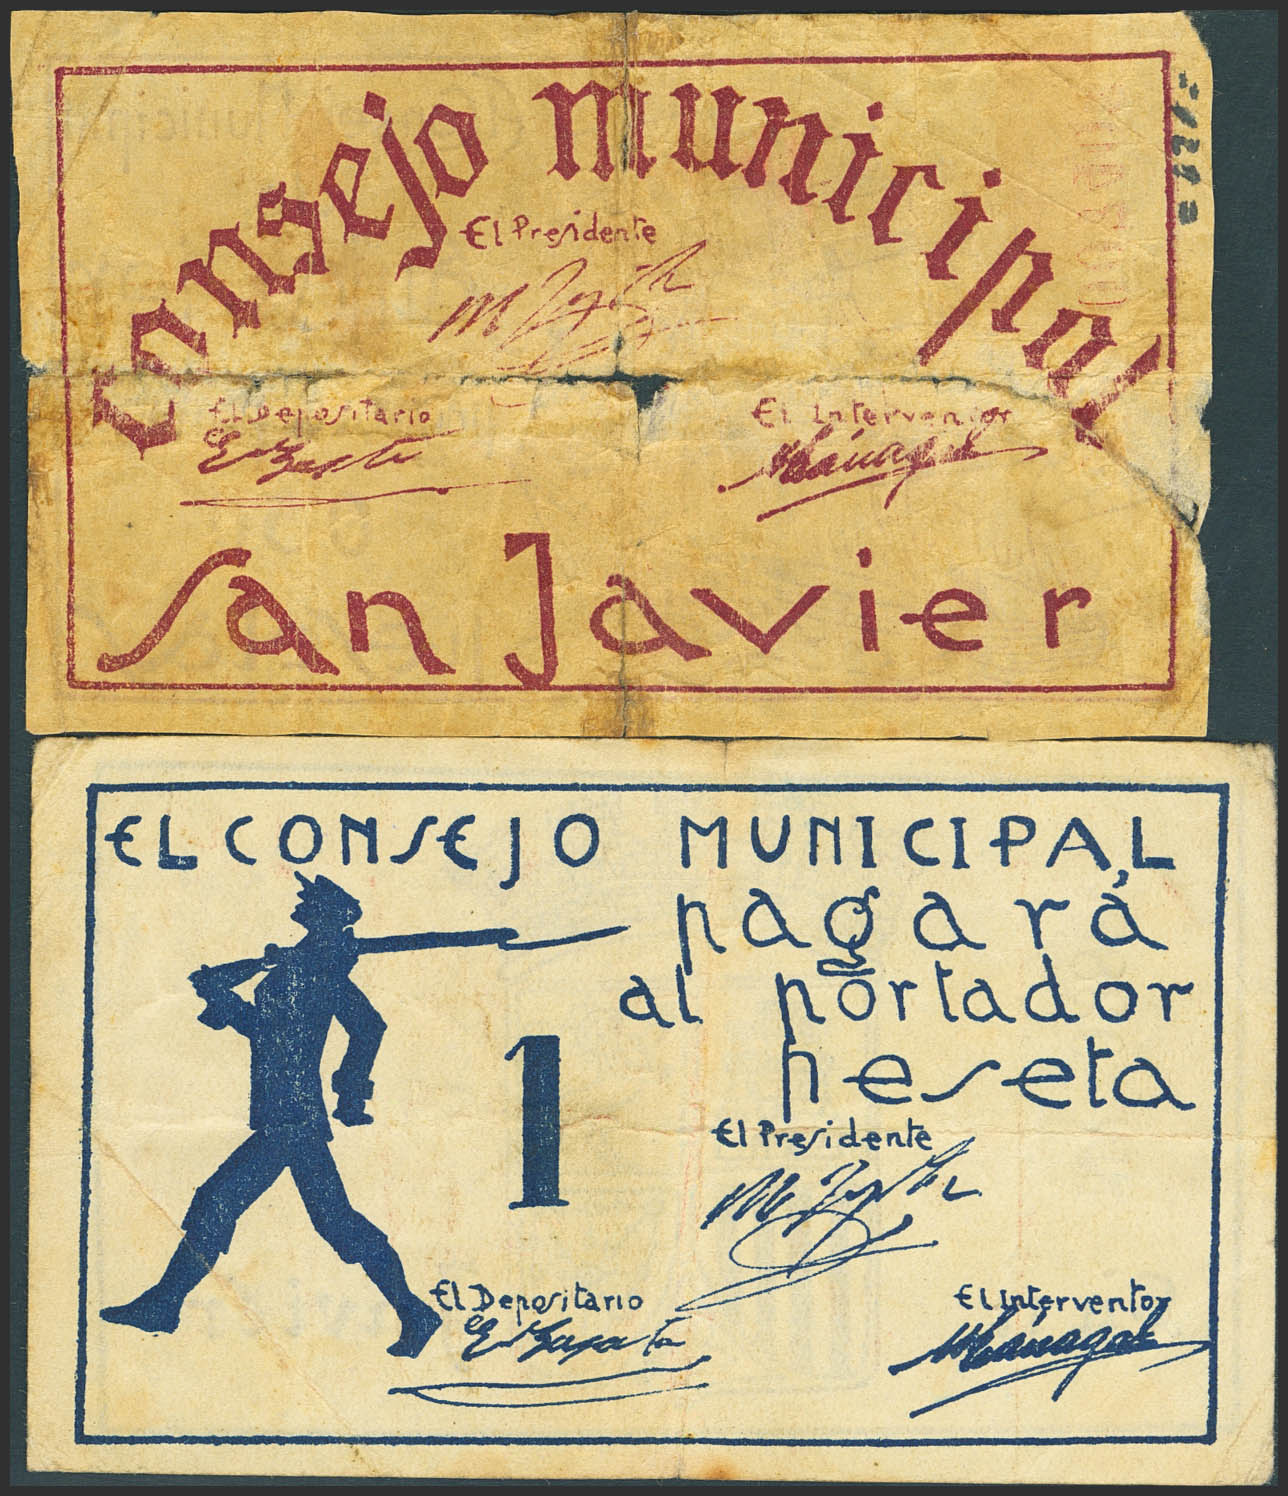 consejo municipal
El Presidente
El Depositario
El Interventor
San Javier
EL CONSEJO MUNICIPAL
pagará
al portador
1 peseta
El Presidente
El Depositario
El Interventor